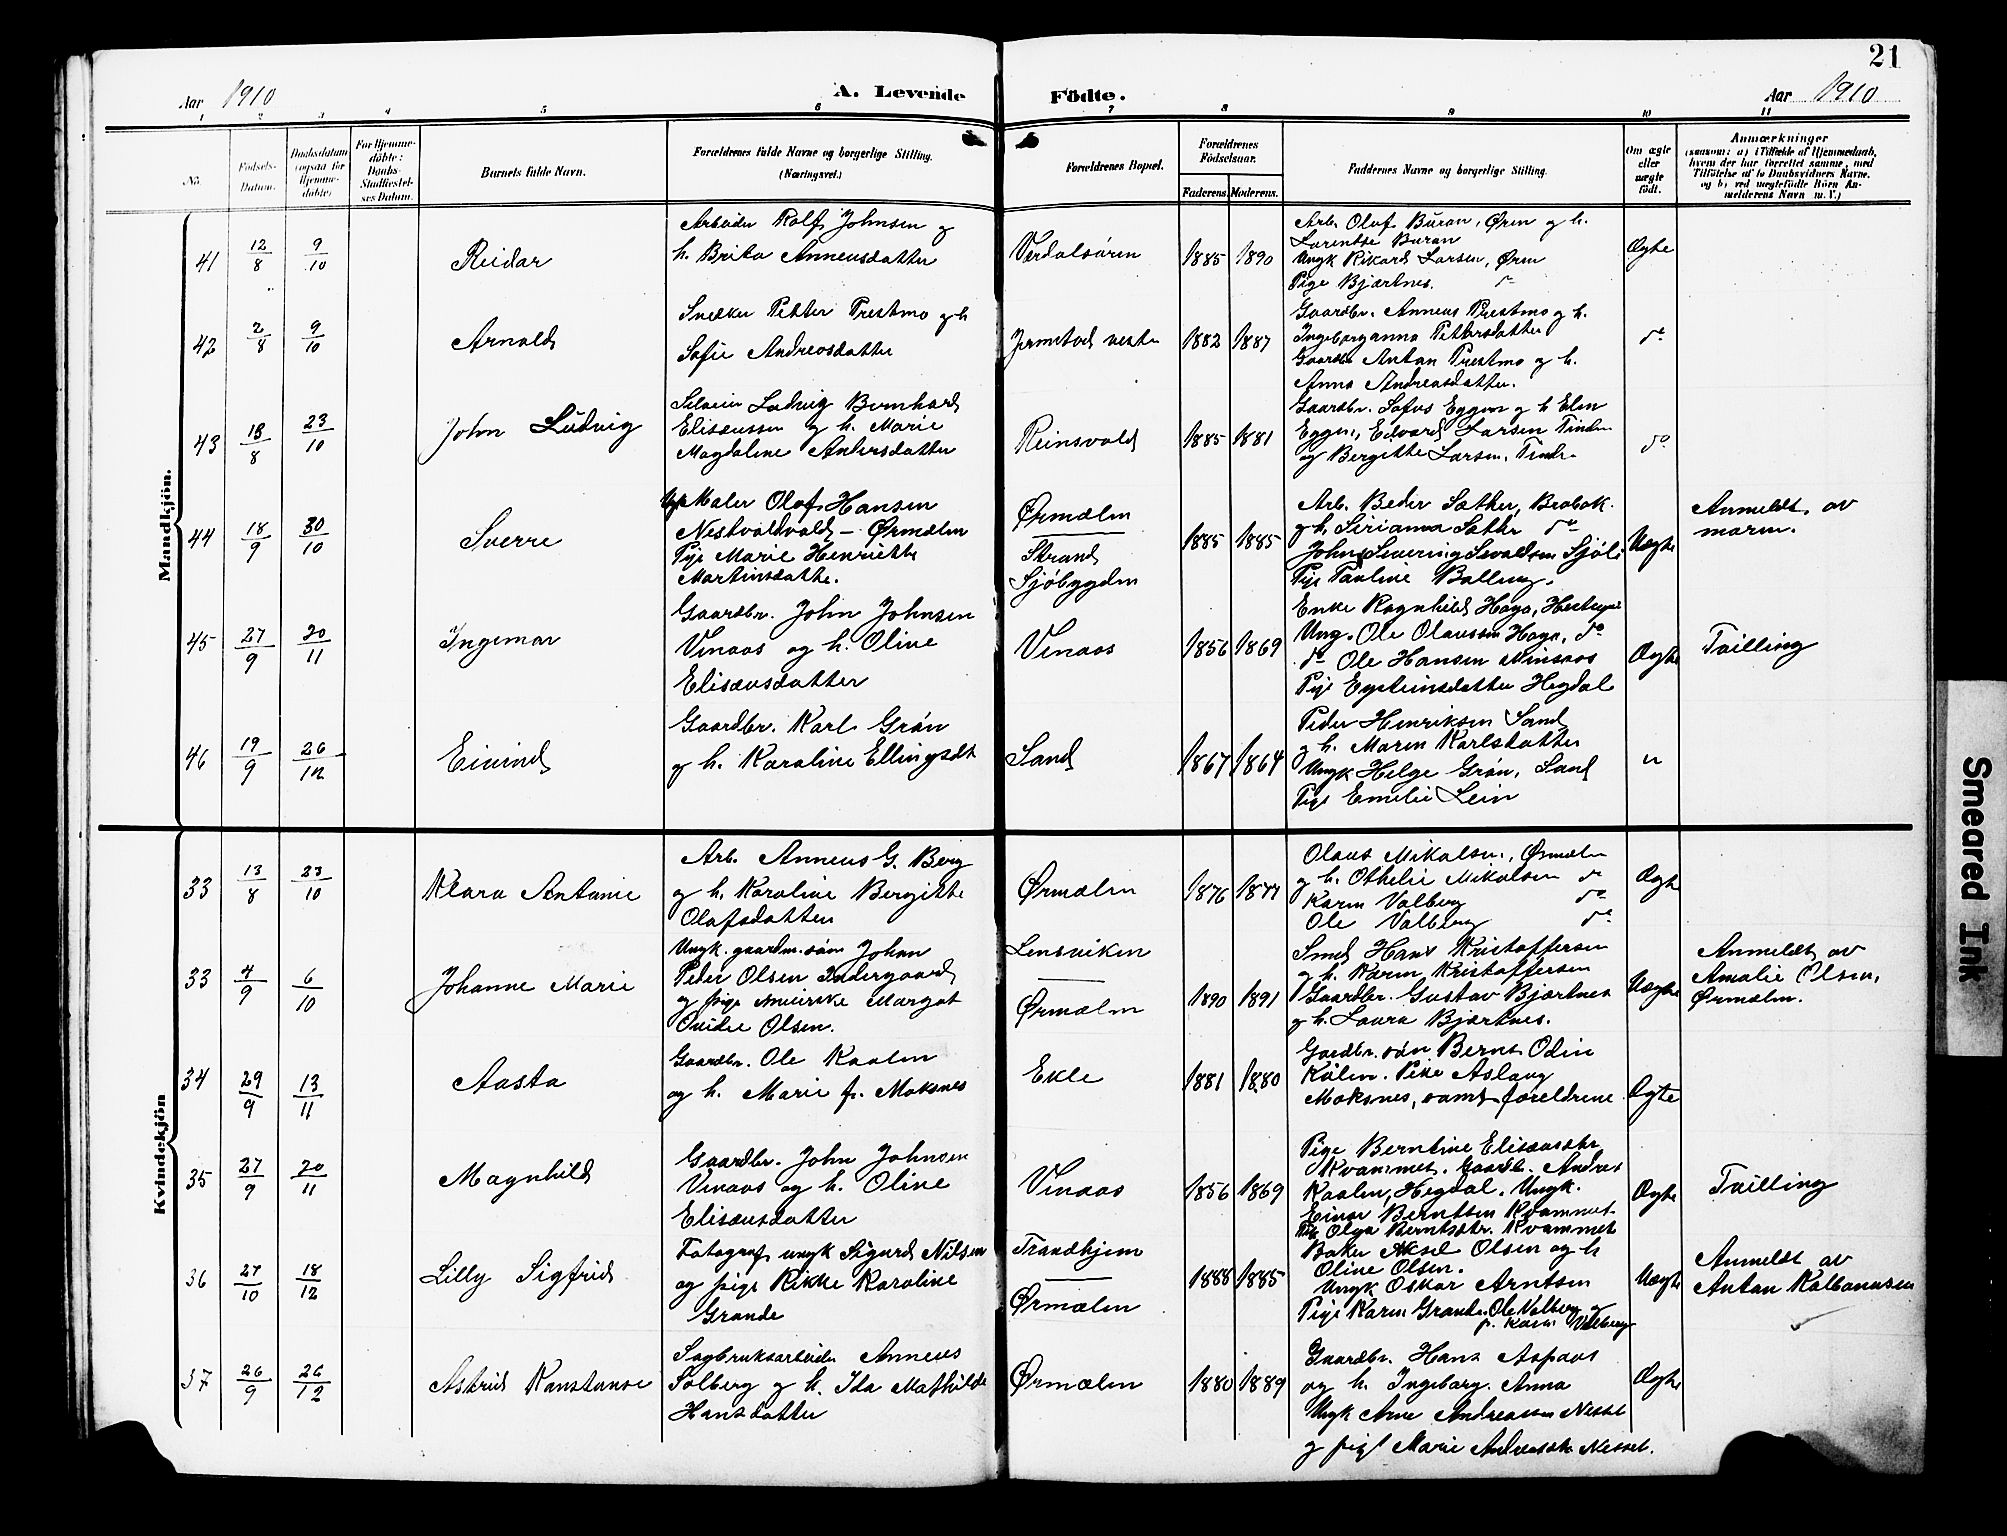 21
Aar 1910
A. Levende Födte.
Aar 1910
1 2 3 4 5 6 7 8 9 10 11
No.
Födsels-Datum.
Daabsdatum (ogsaa for Hjemme-döbte)
For Hjemme-döbte: Daabs-Stadfæstelses Datum.
Barnets fulde Navn.
Forældrenes fulde Navne og borgerlige Stilling. (Næringsvei.)
Forældrenes Bopæl.
Forældrenes Födselsaar.
Faderens. Moderens.
Faddernes Navne og borgerlige Stilling.
Om ægte eller uægte födt.
Anmærkninger
(saasom: a) i Tilfælde af Hjemmedaab, hvem der har forrettet samme, med Tilföielse af to Daabsvidners Navne, og b) ved uægtefödte Börn Anmelderens Navn m. V.)
Mandkjön.
41 12/8 9/10 Reidar
Arbeider Rolf Johnsen og
h. Brita Anneusdatter
Verdalsören 1885 1890
Arb. Olaf Buran, Øren og h.
Lorentse Buran
Ungk Rikard Larsen, Øren
Pige Bjartnes. do
Ægte
42 2/8 9/10 Arnold
Snekker Petter Prestmo og h
Sofie Andreasdatter
Jermstad vestre 1882 1887
Gaardbr. Anneus Prestmo og h.
Ingeborganna Pettersdatter
Gaardbr Anton Prestmo og h.
Anna Andreasdatter.
do
43 18/8 23/10 John Ludvig
Ludvig Bernhard
Elisæussen og h. Marie
Magdaline Andersdatter
Reinsvald 1885 1881
Gaardbr. Sofus Eggen og h Elen
Eggen, Edvard Larsen Tinden
og Bergitte Larsen, Tinden
do
44 18/9 30/10 Sverre
Maler Olaf Hansen
Nestvoldvald – Ørmelen
Pige Marie Henriette
Martinsdatter.
Ørmelen
Strand
Sjöbygden
1885 1885
Arb. Peder Sæther,
og h. Sirianna Sæther do
John Severing Sevaldsen Sjöb
Pige Pauline Balling.
Uægte
Anmeldt av
moren.
45 27/9 20/11 Ingemar
Gaardbr. John Johnsen
Vinaas og h. Oline
Elisæusdatter
Vinaas 1856 1869
Enke Ragnhild Haga,
Ung. Ole Olaussen Hagen, do
do Ole Hansen Minsaas
Pige Eysteinsdatter Hegdal
Ægte
Tvilling
46 19/9 26/12 Eivind
Gaardbr. Karl Grön
og h. Karoline Ellingsdt
Sand 1867 1864
Peder Henriksen Sand
og h. Maren Karlsdatter
Ungk Helge Grön, Sand
Pige Emelie Lein
"
Kvindekjön
33 13/8 23/10 Klara Antonie
Arb. Anneus G. Berg
og h. Karoline Bergitte
Olafsdatter
Ørmelen 1876 1877
Olaus Mikalsen, Ørmelen
og h. Othelie Mikalsen do
Karen Valberg do
Ole Valberg do
Ægte
33 4/9 6/10 Johanne Marie
Ungk. gaardm. sön Johan
Peder Olsen Indergaard
og pige Margot
Ovidie Olsen.
Lensviken
Ørmelen
1890 1891
Smed Hans Kristoffersen
og h. Karen Kristoffersen
Gaardbr. Gustav Bjartnes
og h. Laura Bjartnes.
Uægte
Anmeldt av
Amalie Olsen,
Ørmelen.
34 29/9 13/11 Aasta
Gaardbr. Ole Kaalen
og h. Marie f. Moksnes
Ekle 1881 1880
Gardbr. sön Bernt Odin
Kålen. Pike Aslaug
Moksnes, samt foreldrene
Ægte
35 27/9 20/11 Magnhild
Gaardbr. John Johnsen
Vinaas og h. Oline
Elisæusdatter
Vinaas 1856 1869
Pige Berntine Elisæusdtr
Kvammet. Gaardbr. Andreas
Kaalen, Hegdal. Ungk.
Einar Berntsen Kvammet
Pike Olga Berntsdtr. Kvammet
Ægte
Tvilling
36 27/10 18/12 Lilly Sigfrid
Fotograf ungk Sigurd Nilsen
og pige Rikke Karoline
Grande
Trondhjem
Ørmelen
1888 1885
Baker Aksel Olsen og h
Oline Olsen.
Ungk Oskar Arntsen
Pige Karen Grande. Ole Valberg og
p. Karen Valberg
Uægte
Anmeldt av
Antan Kolbanussen
37 26/9 26/12 Astrid Konstanse
Sagbruksarbeider Anneus
Solberg og h. Ida Mathilde
Hansdatter
Ørmelen 1880 1889
Gaardbr. Hans Aspaas
og h. Ingeborg. Anna
Ungk Arne Andreassen Nessel
og pige Marie Andreasdtr Nessel.
Ægte
Smeared Ink